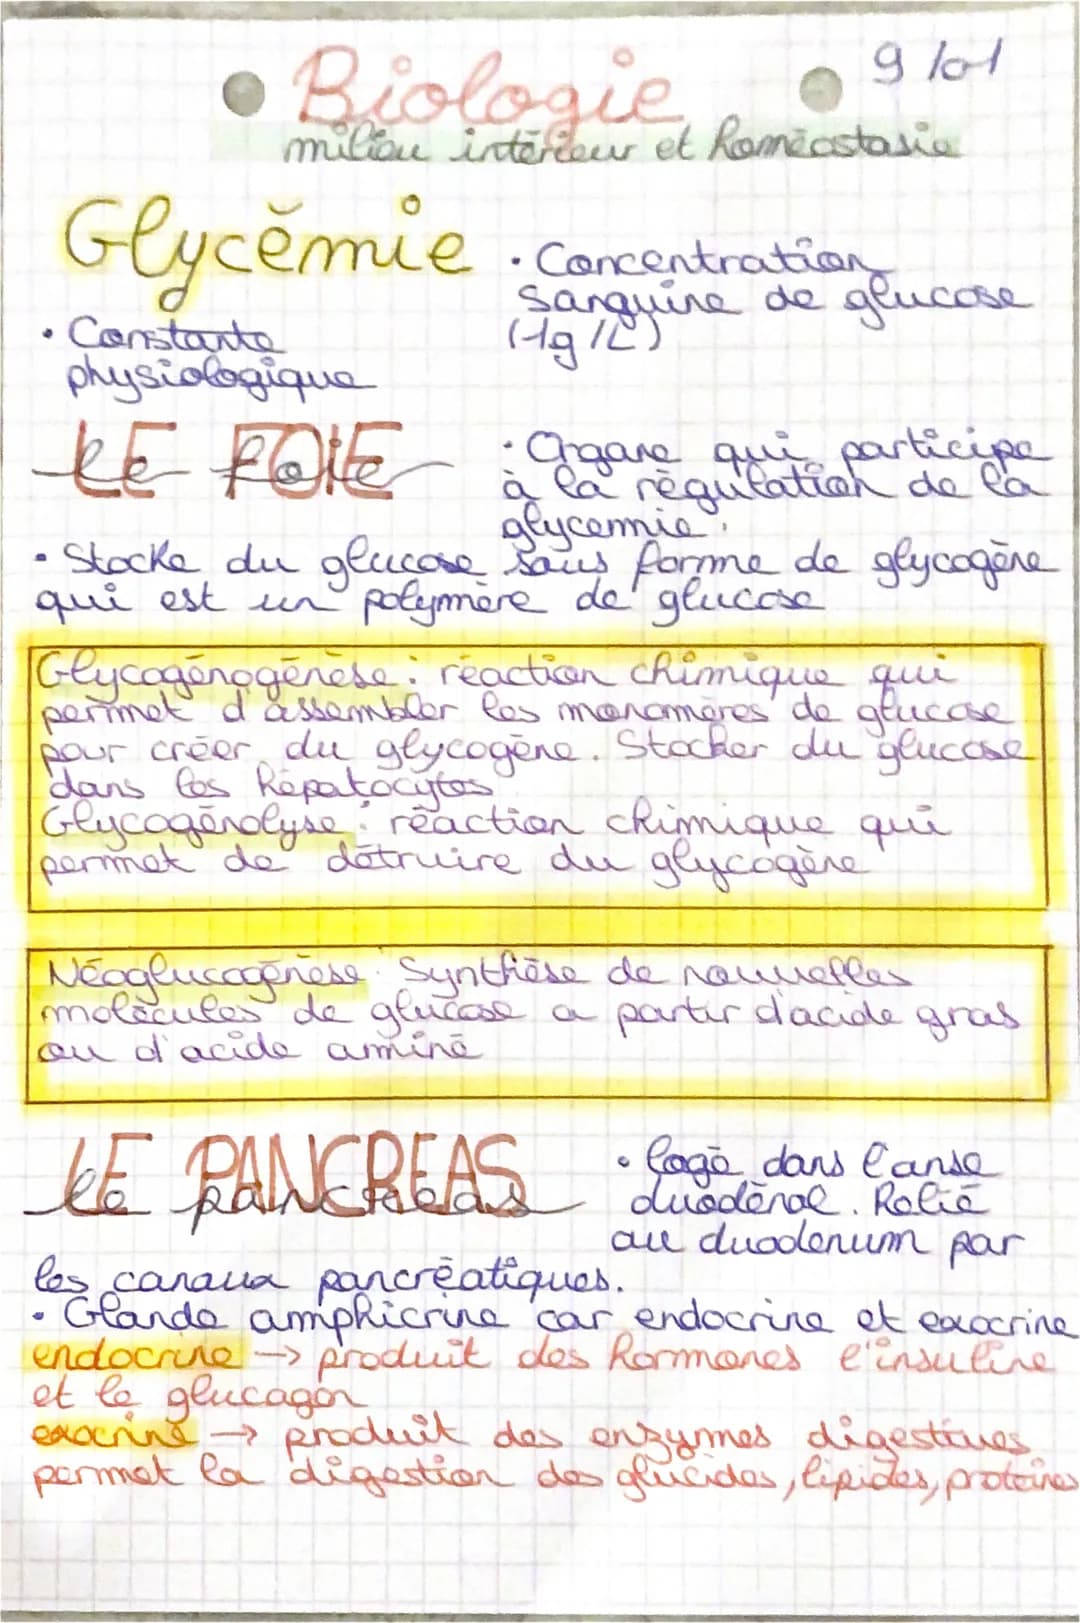 9/01
Biologie
milieu intérieur et homéostasie
Glycémie
• Concentration
sanguine de glucose
(1g/L)
• Constante
physiologique
LE FOIE
le foie
• Organe qui participe
à la régulation de la
glycemie.
• Stocke du glucose sous forme de glycogène
qui est un polymère de glucose
Glycogénogénèse : réaction chimique qui
permet d'assembler les monomères de glucose
pour créer du glycogène. Stocker du glucose
dans les hépatocytes
Glycogénolyse : réaction chimique qui
permet de détruire du glycogène
Néoglucogénèse : Synthèse de nouvelles
molécules de glucose a partir d'acide gras
ou d'acide aminé
LE PANCREAS
le pancreas
• logé dans l'anse
duodénal. Relié
au duodenum par
les canaux pancréatiques.
• Glande amphicrine car endocrine et exocrine
endocrine → produit des hormones l'insuline
et le glucagon
exocrine → produit des enzymes digestives
permet la digestion des glucides, lipides, proteines